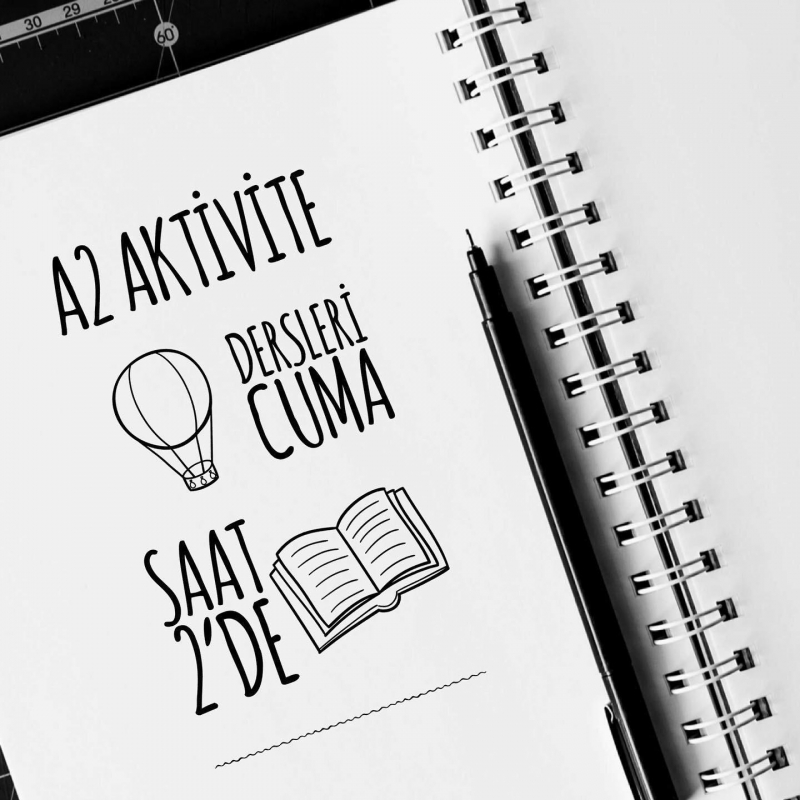 30 29
60
A2 AKTİVİTE
DERSLERİ
CUMA
SAAT
2'DE